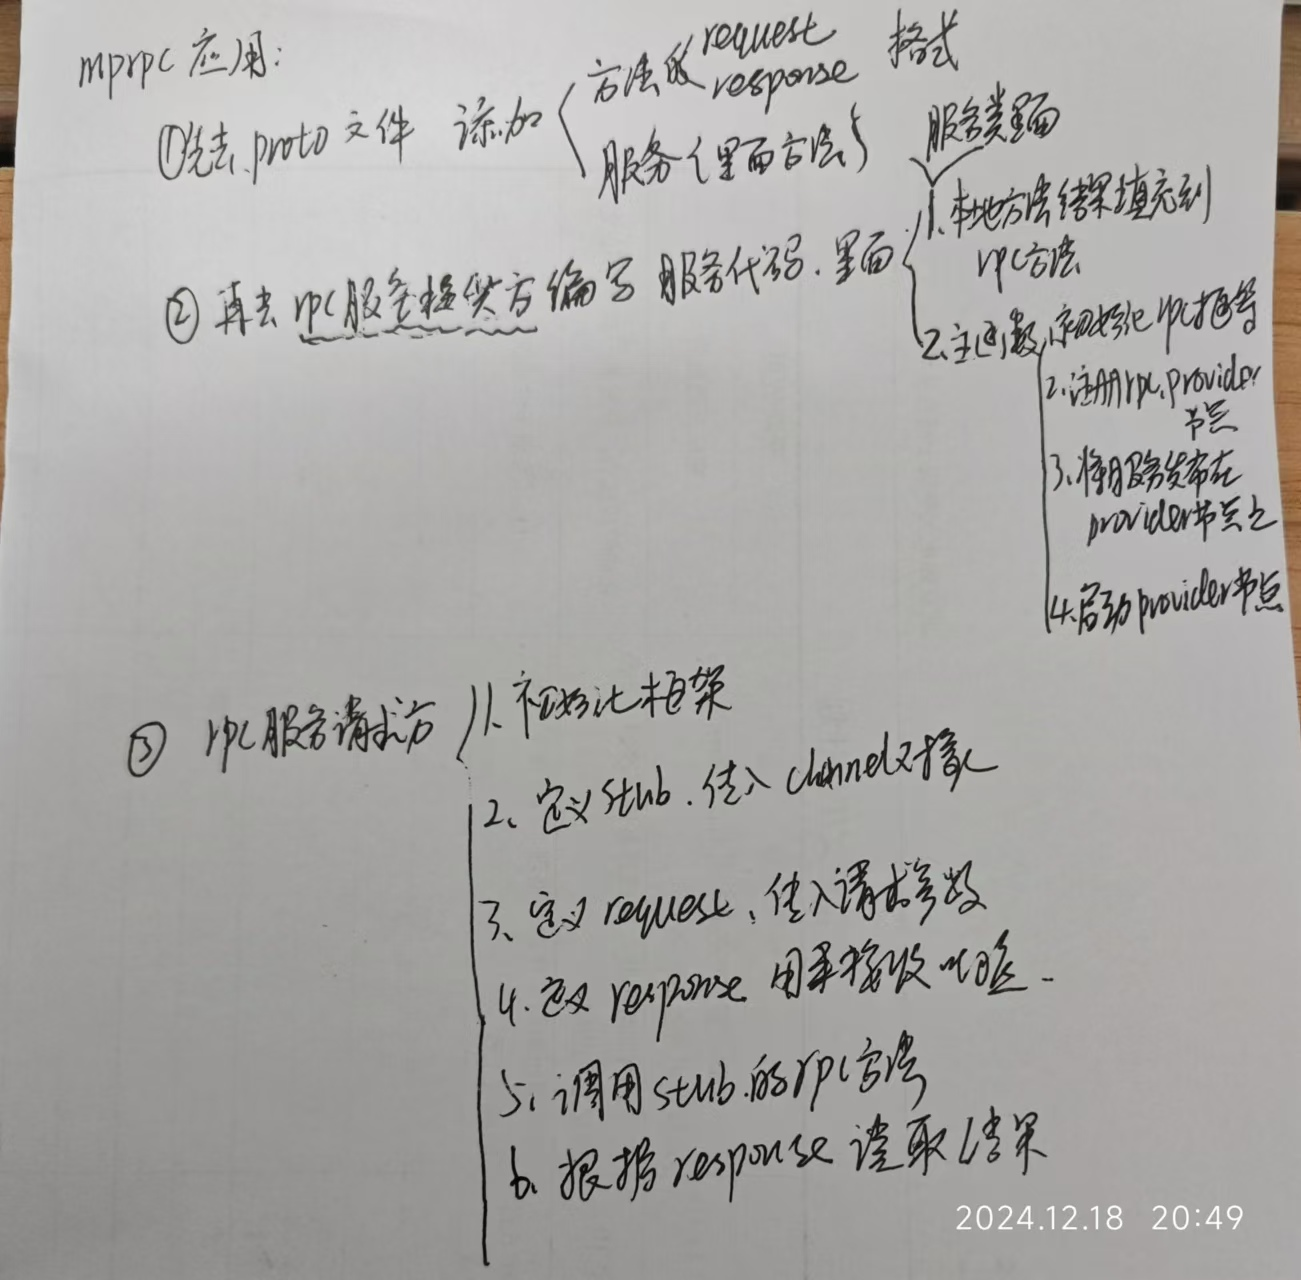 mprpc 应用:
①先去.proto 文件 添加
方法的 request response 格式
服务{里面方法}
②再去 rpc服务提供方编写 服务代码.里面
服务类里面
1.本地方法结果填充到
rpc方法
2.主函数
初始化rpc框架
2.注册rpc.provider
节点
3.将服务发布在
provider节点上
4.启动provider节点
③ rpc服务请求方
1.初始化框架
2.定义stub.传入channel对象
3.定义request.传入请求参数
4.定义response 用来接收响应.
5.调用stub.的rpc方法
6.根据response 读取结果
2024.12.18 20:49